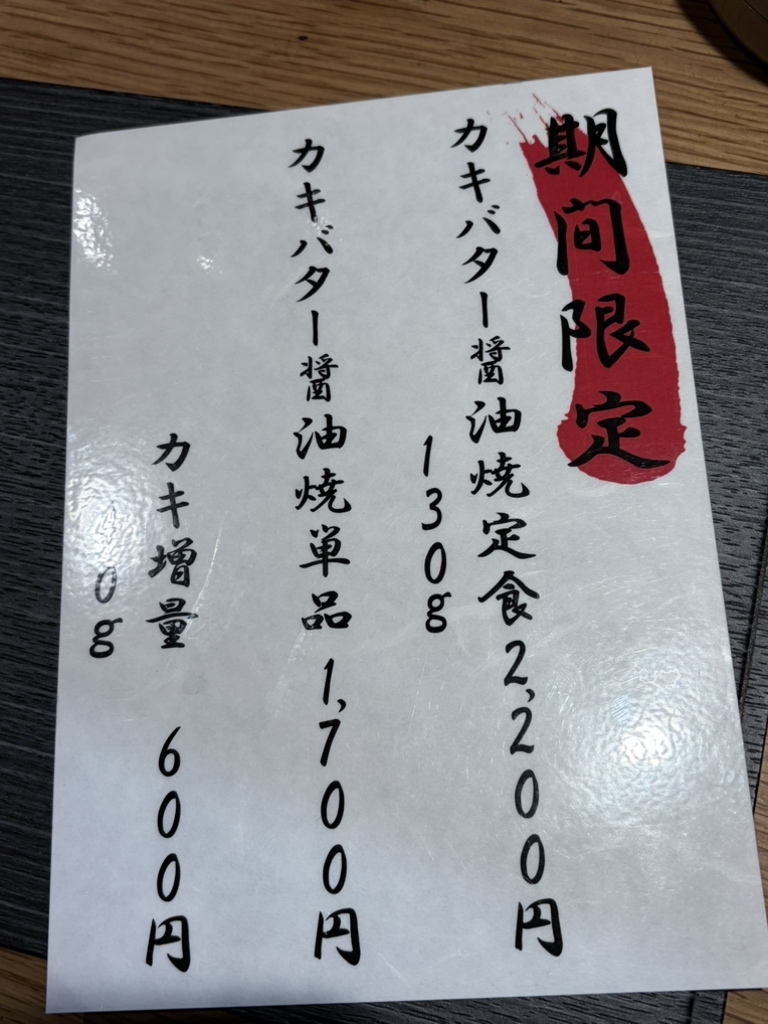 期間限定
カキバター醤油焼定食2,200円
130g
カキバター醤油焼単品1,700円
カキ増量 600円